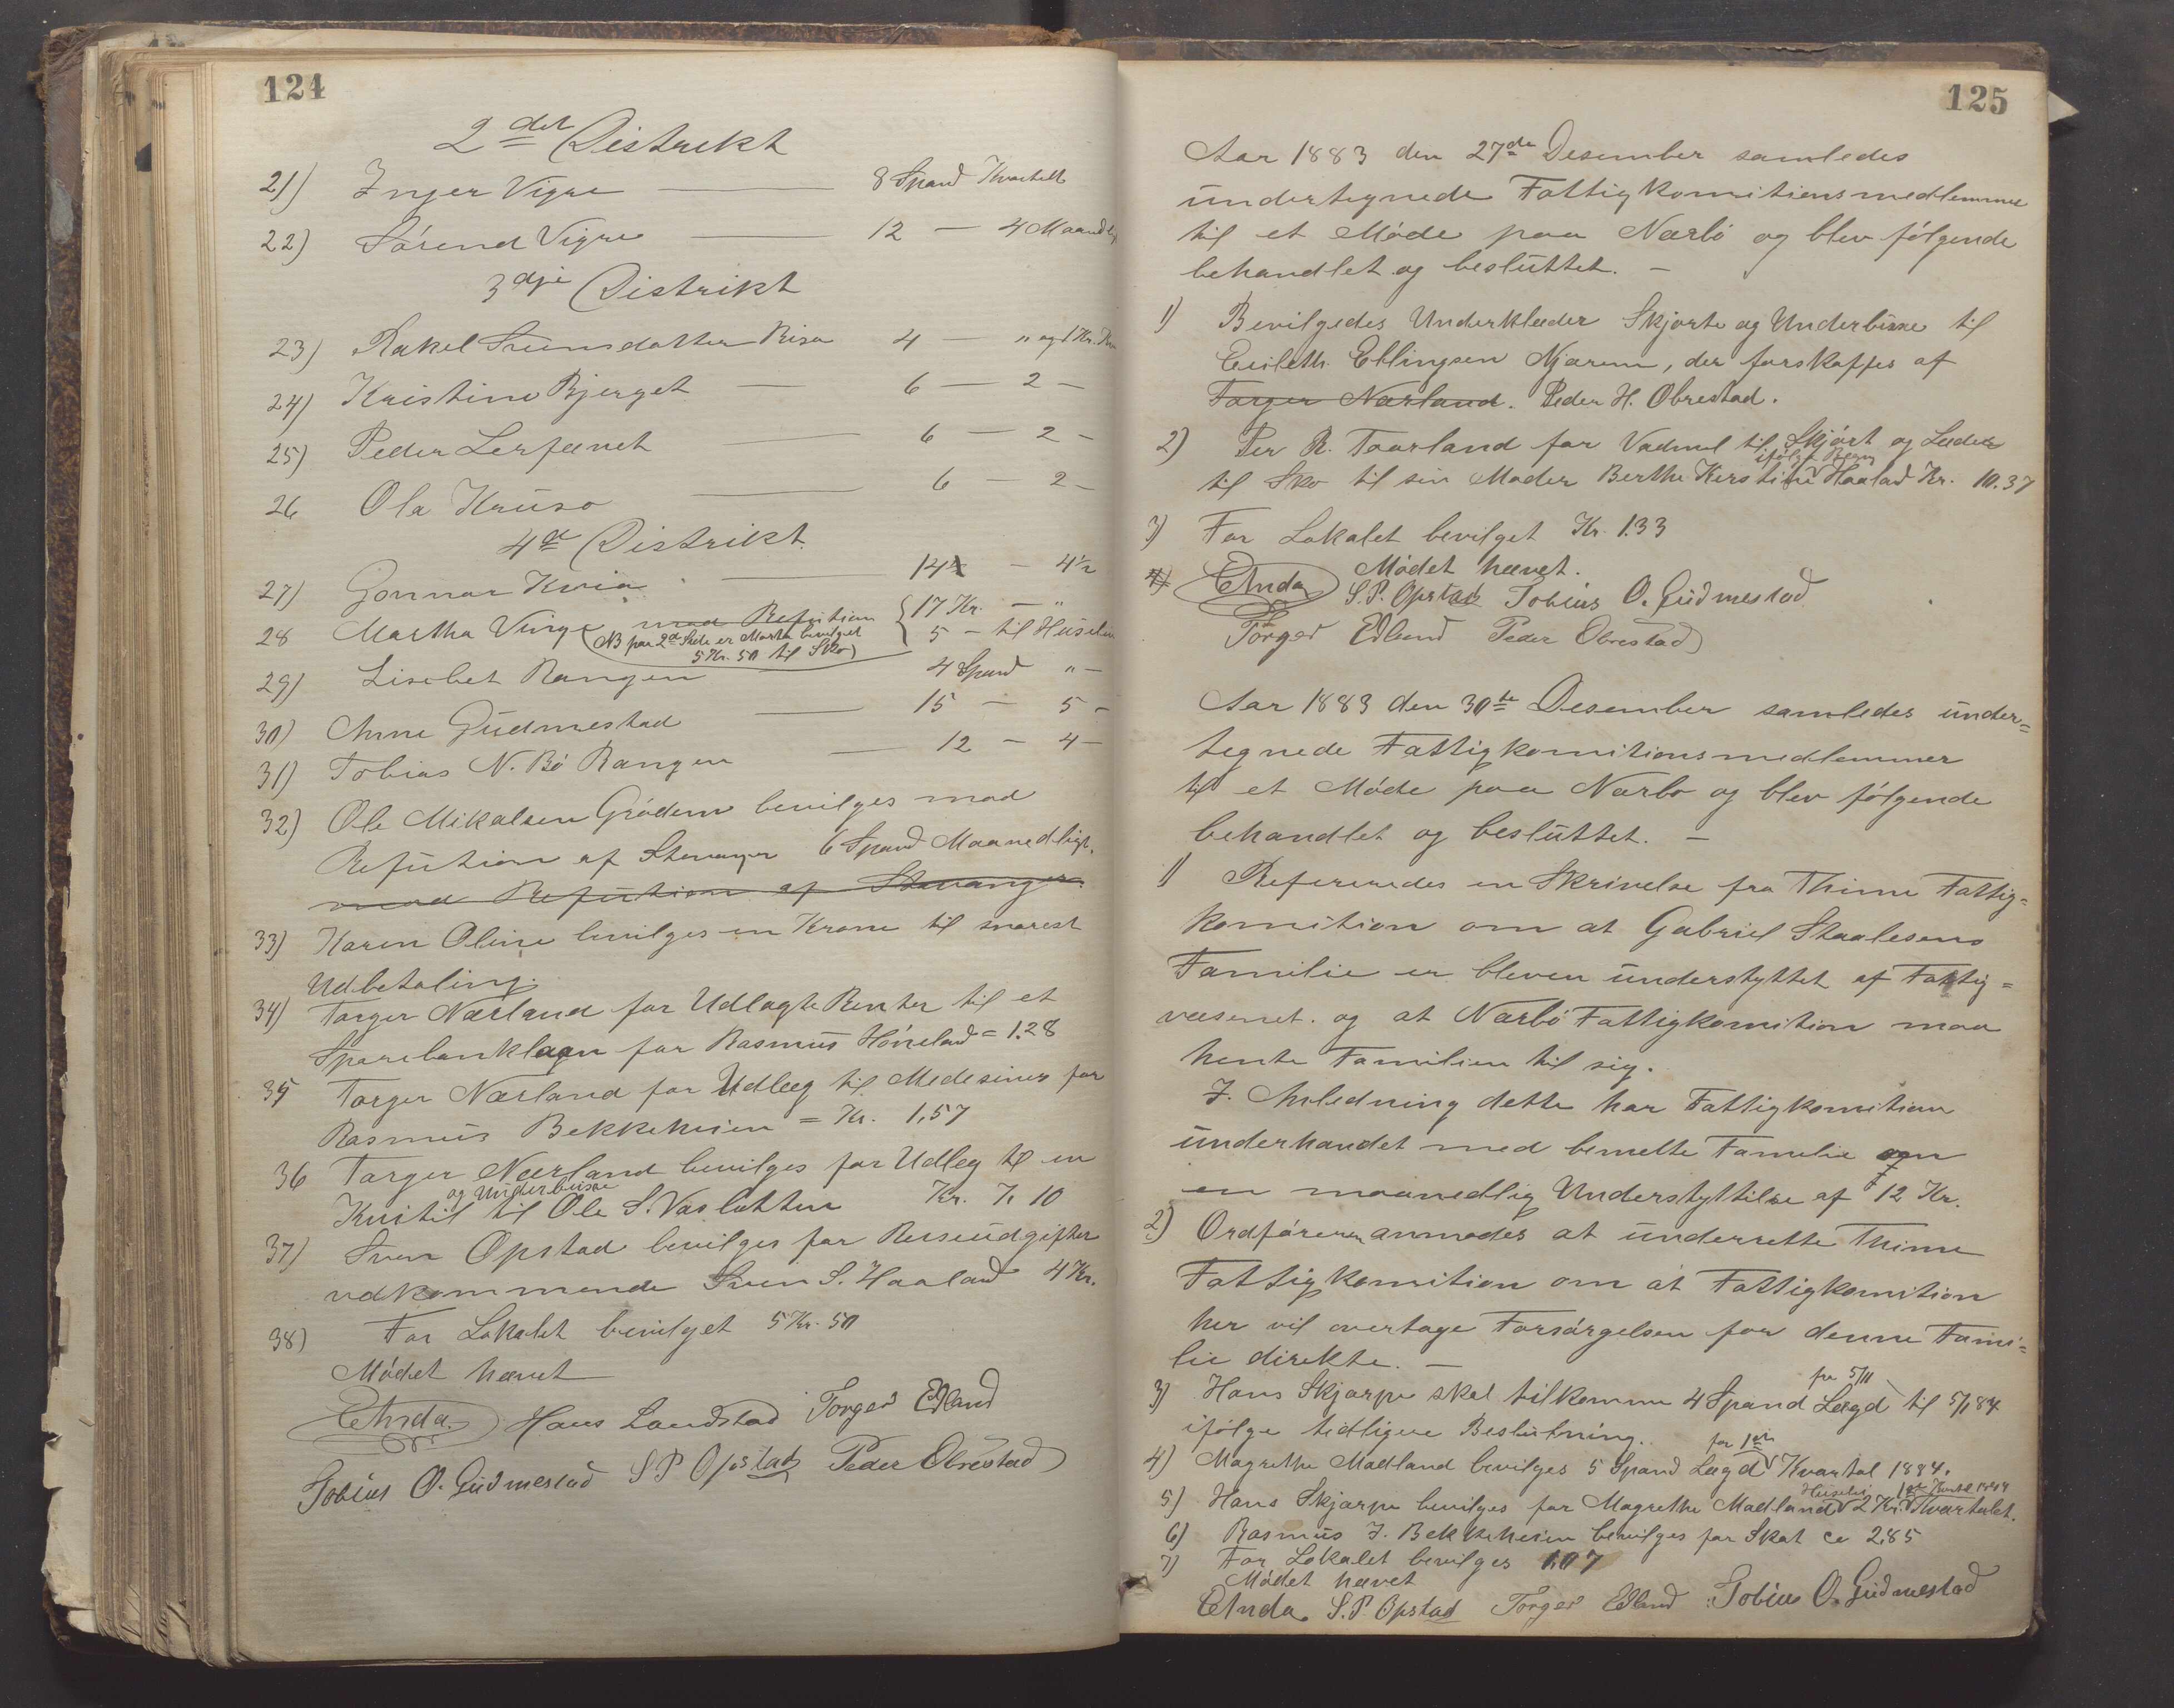 124
2det Distrikt
21) Inger Vigre 8 Spand Kvartalt
22) Sørend Vigre 12 — 4 Maandlig
3dje Distrikt
23) Rakel Svensdatter Risa 4 — " og 1 Kr.
24) Kristine Bjerget — 6 — 2 —
25) Peder Lerfænet — 6 — 2 —
26 Ola Kruso — 6 — 2 —
4de Distrikt
27) Gonnar Kvia — 14 — 4½
28 Martha Vinge med Refution { 17 Kr. — "
(NB paa 2det Sted er Marta bevilget 5 — til Husleie
5 Kr. 50 til Sko)
29) Lisebet Rangen 4 Spand " —
30) Anne Gudmestad — 15 — 5 —
31) Tobias N. Bø Rangen — 12 — 4 —
32) Ole Mikalsen Grødem bevilges mod
Refution af Stavanger 6 Spand Maanedligt.
mod Refution af Stavanger.
33) Karen Oline bevilges en Krone til snarest
Udbetaling.
34) Torger Nærland for Udlagte Renter til et
Sparebanklaan for Rasmus Høiland = 1.28
35 Torger Nærland for Udlæg til Medesiner for
Rasmus Bekkeheien = Kr. 1,57
36 Torger Nærland bevilges for Udleg til en
og Underbuxe
Knitil til Ole S. Vasletten Kr. 7,10
37) Sven Opstad bevilges for Reiseudgifter
vedkommende Sven S. Haaland 4 Kr.
38) For Lokalet bevilget 5 Kr. 50
Mødet hævet
EAnda. Hans Laudstad Torger Edland
Tobius O. Gudmestad S P Opstad Peder Obrestad
125
Aar 1883 den 27de Desember samledes
undertegnede Fattigkomitionsmedlemmer
til et Møde paa Nærbø og blev følgende
behandlet og besluttet. —
1) Bevilgedes Underklæder Skjorte og Underbuxe til
Ellingsen Njærem, der forskaffes af
Torger Nærland. Peder H. Obrestad.
2) Per R. Taarland for Vadmel til Skjørt og Læder
ifølge Regn
til Sko til sin Moder Berthe Kerstine Haalad Kr. 10.37
3) For Lokalet bevilget Kr. 1.33
4) Mødet hævet.
EAnda S. P. Opstad Tobius O. Gudmestad
Torger Edland Peder Obrestad
Aar 1883 den 30te Desember samledes under=
tegnede Fattigkomitionsmedlemmer
til et Møde paa Nærbo og blev følgende
behandlet og besluttet. —
1) Refereredes en Skrivelse fra Thime Fattig=
komition om at Gabriel Staalesens
Familie er bleven understyttet af Fattig=
væsenet. og at Nærbø Fattigkomition maa
hente Familien til sig.
I. Anledning dette har Fattigkomition
underhandet med bemelte Familie om
en maanedlig Understyttilse af 12 Kr.
2) Ordføreren anmodes at underrette Thime
Fattigkomition om at Fattigkomition
her vil overtage Forsørgelsen for denne Fami=
lie direkte. —
fra 5/11
3) Hans Skjærpe skal tilkomme 4 Spand Lægd til 5/1 84
ifølge tidligere Beslutning.
for 1ste
4) Magrethe Madland bevilges 5 Spand Lægd Kvartal 1884.
Husleie 1ste Kvartal 1884
5) Hans Skjærpe bevilges for Magrethe Madland 2 Kr. Kvartalet.
6) Rasmus J. Bekkeheien bevilges for Skat ca 2,85
7) For Lokalet bevilges 1,07
Mødet hævet
EAnda. S. P. Opstad Torger Edland Tobius O. Gudmestad